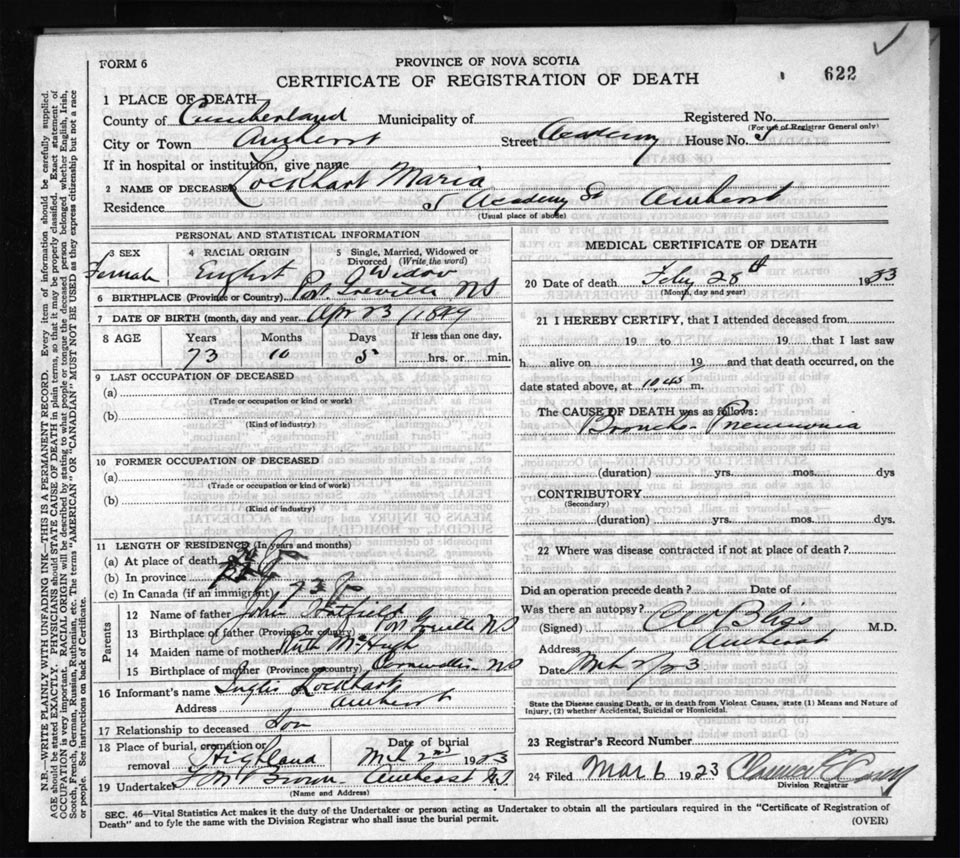 FORM 6
PROVINCE OF NOVA SCOTIA
CERTIFICATE OF REGISTRATION OF DEATH
622
1 PLACE OF DEATH
County of Cumberland Municipality of Registered No.
(For use of Registrar General only)
City or Town Amherst Street Academy House No. 5
If in hospital or institution, give name
2 NAME OF DECEASED Lockhart Maria
Residence 5 Academy St Amherst
(Usual place of abode)
PERSONAL AND STATISTICAL INFORMATION
3 SEX Female
4 RACIAL ORIGIN English
5 Single, Married, Widowed or Divorced (Write the word) Widow
6 BIRTHPLACE (Province or Country) Port Greville NS
7 DATE OF BIRTH (month, day and year) Apr 23 1849
8 AGE Years Months Days If less than one day,
73 10 5 hrs. or min.
9 LAST OCCUPATION OF DECEASED
(a)
(Trade or occupation or kind or work)
(b)
(Kind of industry)
10 FORMER OCCUPATION OF DECEASED
(a)
(Trade or occupation or kind or work)
(b)
(Kind of industry)
11 LENGTH OF RESIDENCE (In years and months)
(a) At place of death
(b) In province
(c) In Canada (if an immigrant) 73
Parents
12 Name of father John Hatfield
13 Birthplace of father (Province or country) Port Greville NS
14 Maiden name of mother Ruth McHugh
15 Birthplace of mother (Province or Country) Cornwallis NS
16 Informant's name Inglis Lockhart
Address Amherst
17 Relationship to deceased Son
18 Place of burial, cremation or removal Highland
Date of burial Mch 2nd 1923
19 Undertaker Brown Amherst NS
(Name and Address)
MEDICAL CERTIFICATE OF DEATH
20 Date of death Feby 28th 1923
(Month, day and year)
21 I HEREBY CERTIFY, that I attended deceased from
19 to 19 that I last saw
h alive on 19 and that death occurred, on
date stated above, at 10.45 m.
The CAUSE OF DEATH was as follows:
Broncho-Pneumonia
(duration) yrs. mos. dys
CONTRIBUTORY
(Secondary)
(duration) yrs. mos. dys.
22 Where was disease contracted if not at place of death?
Did an operation precede death? Date of
Was there an autopsy?
(Signed) Bliss M.D.
Address Amherst
Date Mch 2/23
State the Disease causing Death, or in death from Violent Causes, state (1) Means and Nature of
Injury, (2) whether Accidental, Suicidal or Homicidal.
23 Registrar's Record Number
24 Filed Mar 6 1923
Division Registrar
SEC. 46—Vital Statistics Act makes it the duty of the Undertaker or person acting as Undertaker to obtain all the particulars required in the "Certificate of Registration of
Death" and to fyle the same with the Division Registrar who shall issue the burial permit.
(OVER)
N.B.—WRITE PLAINLY WITH UNFADING INK—THIS IS A PERMANENT RECORD. Every item of information should be carefully supplied.
AGE should be stated EXACTLY. PHYSICIANS should STATE CAUSE OF DEATH in plain terms, so that it may be properly classified. Exact statement of
OCCUPATION is very important. RACIAL ORIGIN will be described by stating to what people or tongue the deceased person belonged whether English, Irish,
Scotch, French, German, Russian, Ruthenian, etc. The terms "AMERICAN" OR "CANADIAN" MUST NOT BE USED as they express citizenship but not a race
or people. See instructions on back of Certificate.